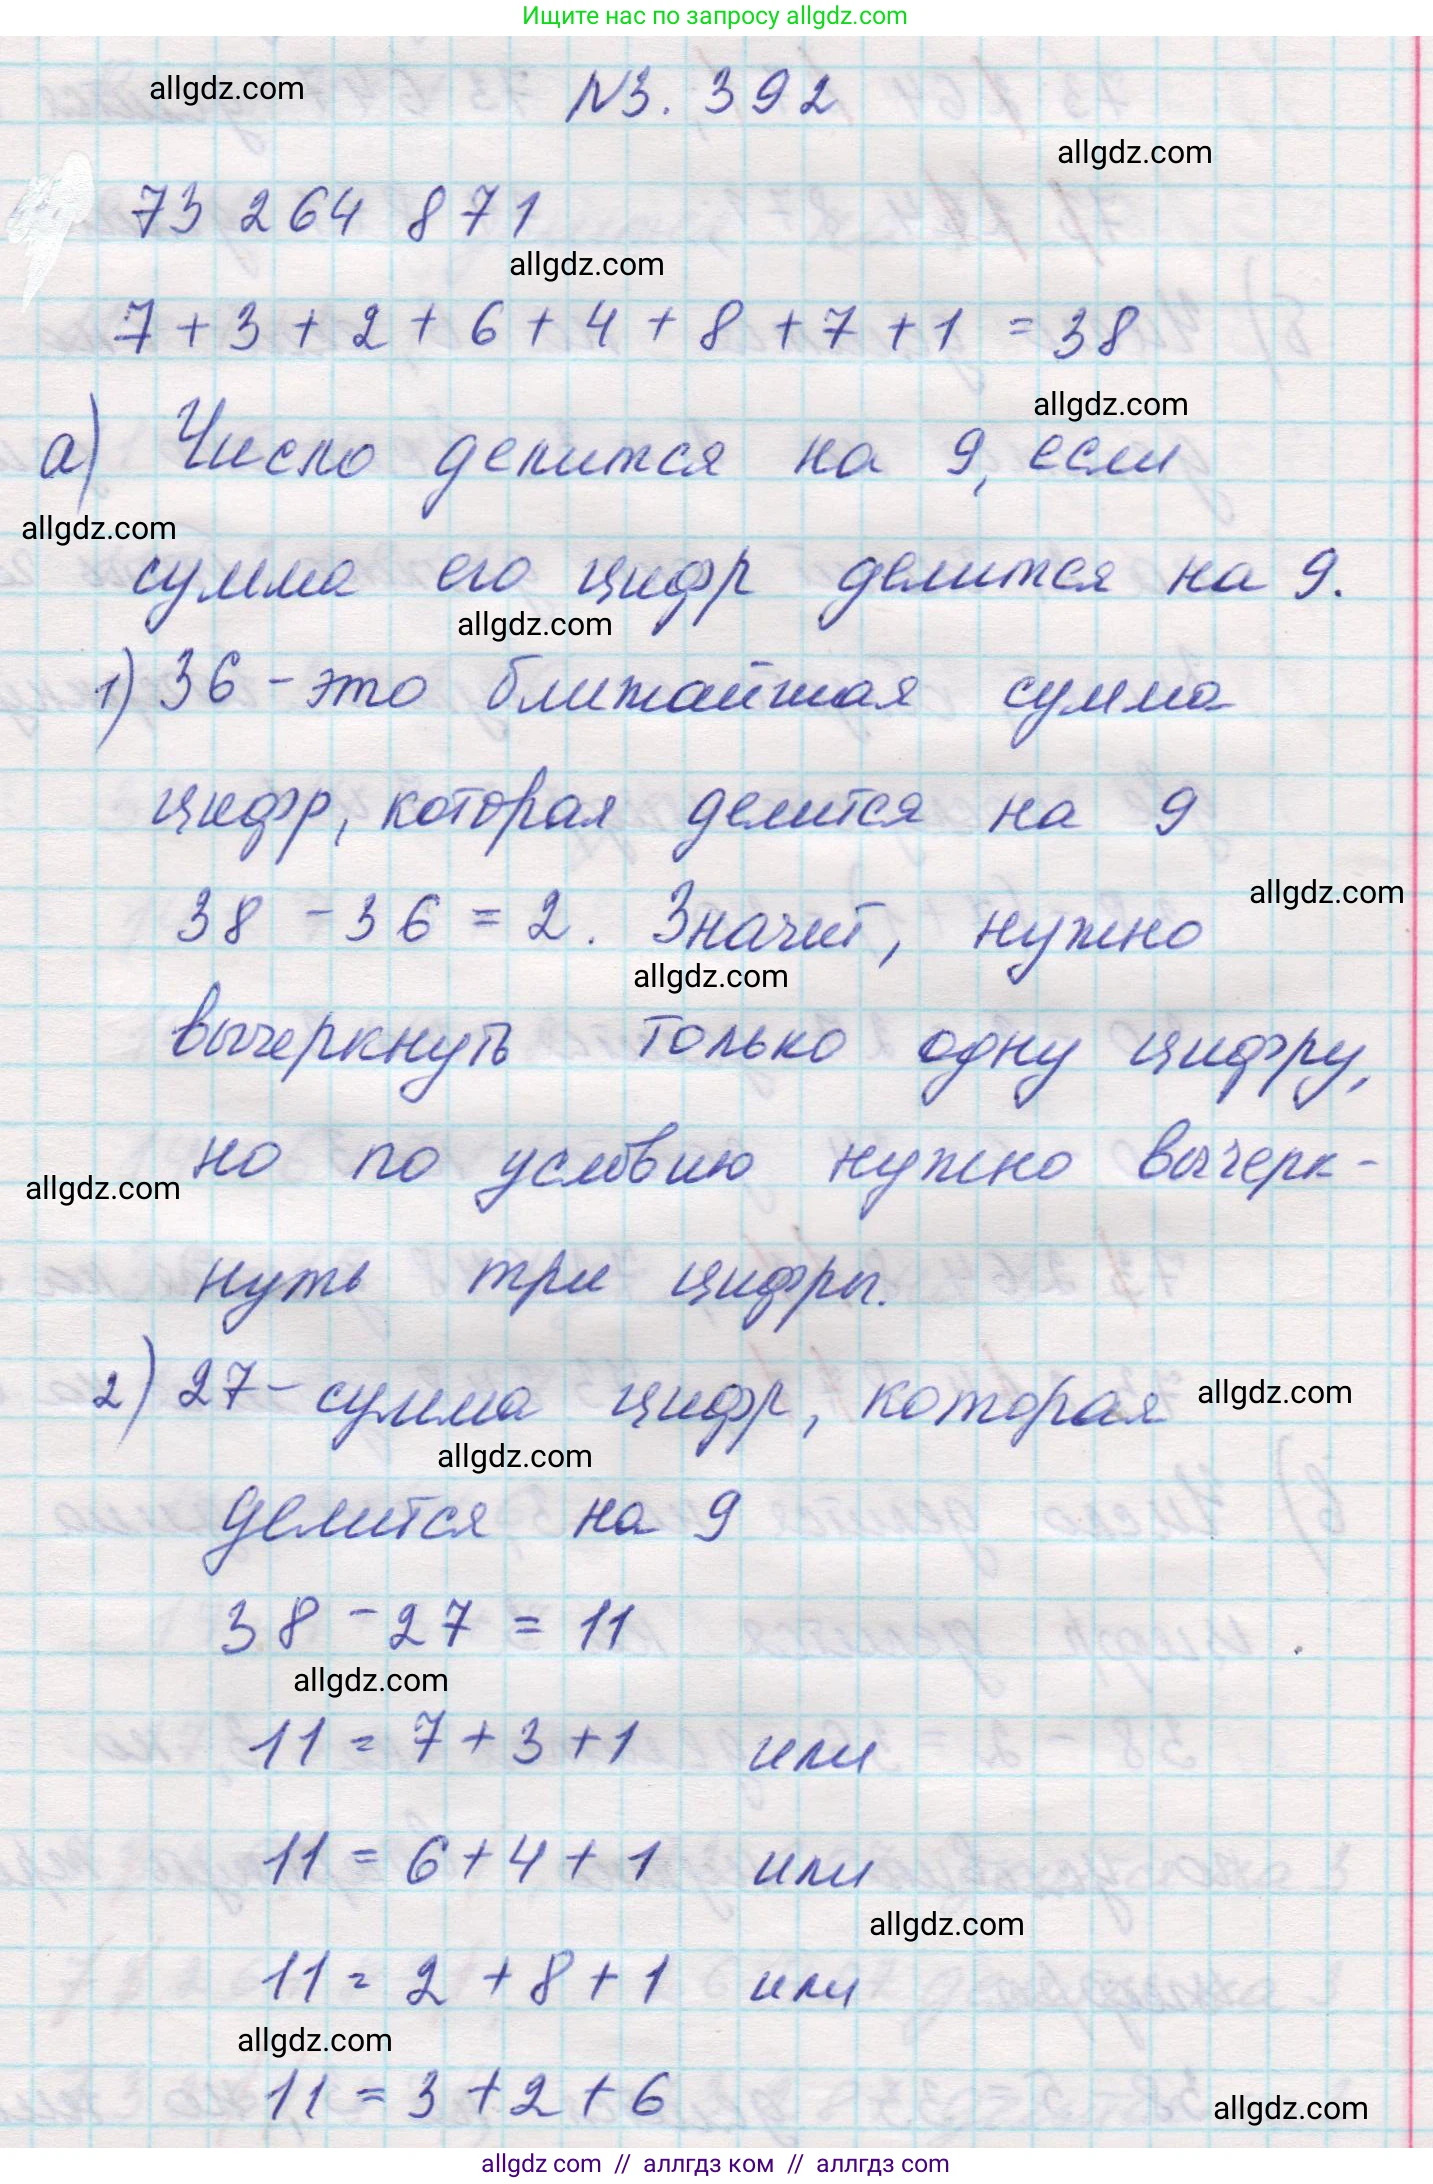 Ищите нас по запросу allgdz.com
allgdz.com
N3. 392
allgdz.com
73 264 871
allgdz.com
7 + 3 + 2 + 6 + 4 + 8 + 7 + 1 = 38
allgdz.com
а) Число делится на 9, если
allgdz.com
сумма его цифр делится на 9.
allgdz.com
1) 36 - это ближайшая сумма
цифр, которая делится на 9
allgdz.com
38 - 36 = 2. Значит, нужно
allgdz.com
вычеркнуть только одну цифру,
но по условию нужно вычерк-
allgdz.com
нуть три цифры.
2) 27 - сумма цифр, которая
allgdz.com
allgdz.com
делится на 9
38 - 27 = 11
allgdz.com
11 = 7 + 3 + 1 или
11 = 6 + 4 + 1 или
allgdz.com
11 = 2 + 8 + 1 или
allgdz.com
11 = 3 + 2 + 6
allgdz.com
allgdz com // аллгдз ком // аллгдз com